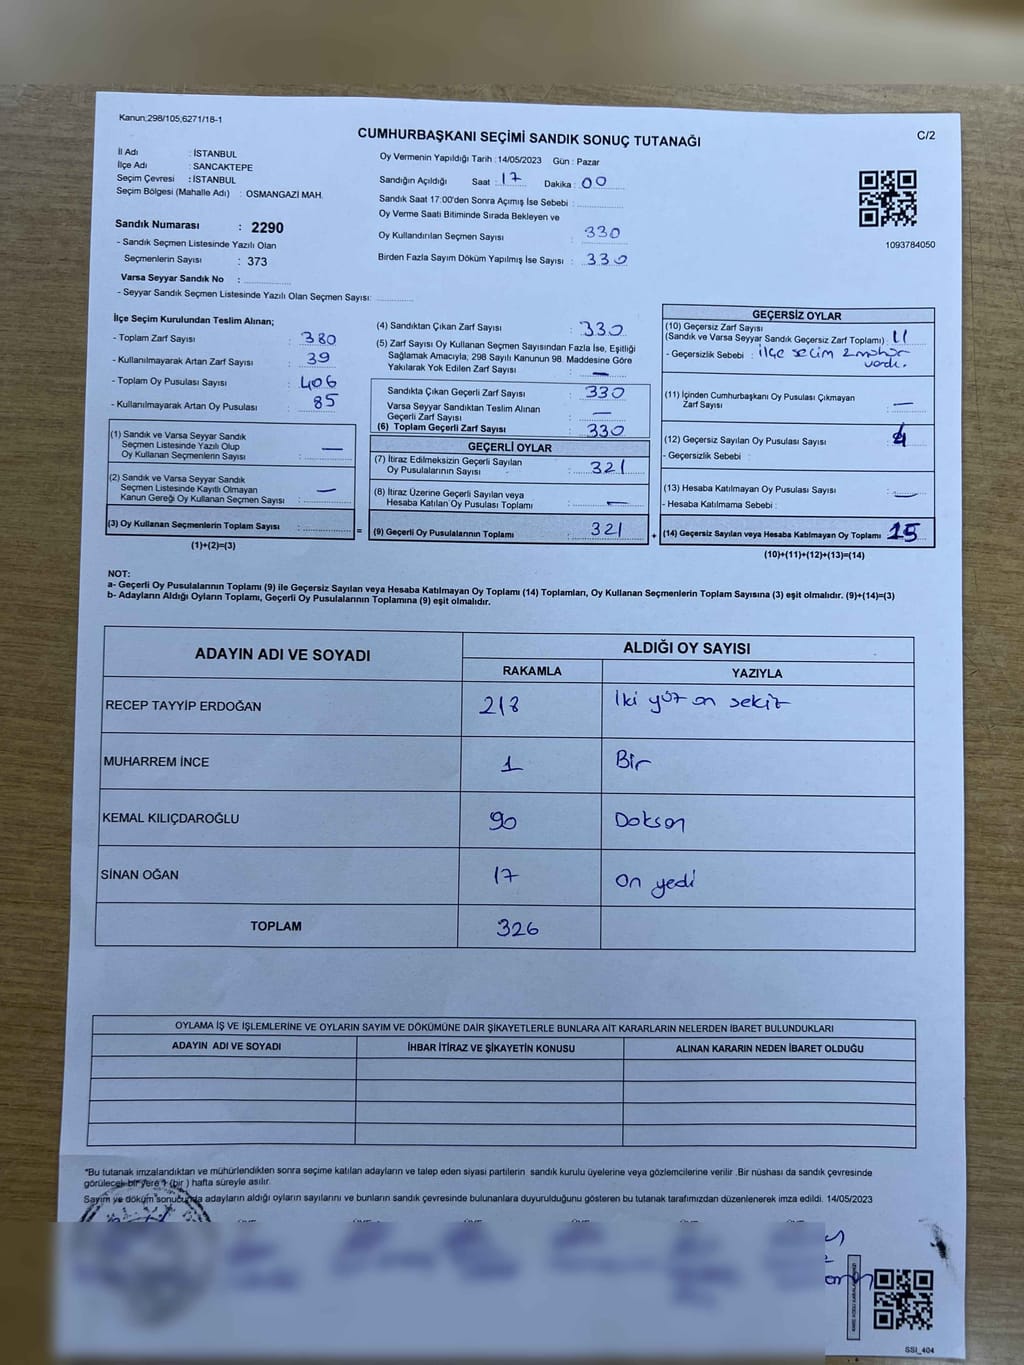 Kanun,298/105,6271/18-1
CUMHURBAŞKANI SEÇİMİ SANDIK SONUÇ TUTANAĞI
C/2
İl Adı : İSTANBUL
İlçe Adı : SANCAKTEPE
Seçim Çevresi : İSTANBUL
Seçim Bölgesi (Mahalle Adı) : OSMANGAZİ MAH.
Sandık Numarası : 2290
- Sandık Seçmen Listesinde Yazılı Olan
Seçmenlerin Sayısı : 373
Varsa Seyyar Sandık No :
- Seyyar Sandık Seçmen Listesinde Yazılı Olan Seçmen Sayısı:
Oy Vermenin Yapıldığı Tarih :14/05/2023 Gün : Pazar
Sandığın Açıldığı Saat : 17 Dakika : 00
Sandık Saat 17:00'den Sonra Açımış İse Sebebi :
Oy Verme Saati Bitiminde Sırada Bekleyen ve
Oy Kullandırılan Seçmen Sayısı : 330
Birden Fazla Sayım Döküm Yapılmış İse Sayısı : 330
1093784050
İlçe Seçim Kurulundan Teslim Alınan;
- Toplam Zarf Sayısı : 380
- Kullanılmayarak Artan Zarf Sayısı : 39
- Toplam Oy Pusulası Sayısı : 406
- Kullanılmayarak Artan Oy Pusulası : 85
(1) Sandık ve Varsa Seyyar Sandık
Seçmen Listesinde Yazılı Olup
Oy Kullanan Seçmenlerin Sayısı : —
(2) Sandık ve Varsa Seyyar Sandık
Seçmen Listesinde Kayıtlı Olmayan
Kanun Gereği Oy Kullanan Seçmen Sayısı : —
(3) Oy Kullanan Seçmenlerin Toplam Sayısı :
=
(1)+(2)=(3)
(4) Sandıktan Çıkan Zarf Sayısı : 330
(5) Zarf Sayısı Oy Kullanan Seçmen Sayısından Fazla İse, Eşitliği
Sağlamak Amacıyla; 298 Sayılı Kanunun 98. Maddesine Göre
Yakılarak Yok Edilen Zarf Sayısı : —
Sandıkta Çıkan Geçerli Zarf Sayısı : 330
Varsa Seyyar Sandıktan Teslim Alınan
Geçerli Zarf Sayısı : —
(6) Toplam Geçerli Zarf Sayısı : 330
GEÇERLİ OYLAR
(7) İtiraz Edilmeksizin Geçerli Sayılan
Oy Pusulalarının Sayısı : 321
(8) İtiraz Üzerine Geçerli Sayılan veya
Hesaba Katılan Oy Pusulası Toplamı : —
(9) Geçerli Oy Pusulalarının Toplamı : 321
+
GEÇERSİZ OYLAR
(10) Geçersiz Zarf Sayısı
(Sandık ve Varsa Seyyar Sandık Geçersiz Zarf Toplamı) : 11
- Geçersizlik Sebebi : ilçe seçim 2 mühür
verdi.
(11) İçinden Cumhurbaşkanı Oy Pusulası Çıkmayan
Zarf Sayısı : —
(12) Geçersiz Sayılan Oy Pusulası Sayısı : 4
- Geçersizlik Sebebi :
(13) Hesaba Katılmayan Oy Pusulası Sayısı : —
- Hesaba Katılmama Sebebi :
(14) Geçersiz Sayılan veya Hesaba Katılmayan Oy Toplamı : 15
(10)+(11)+(12)+(13)=(14)
NOT:
a- Geçerli Oy Pusulalarının Toplamı (9) ile Geçersiz Sayılan veya Hesaba Katılmayan Oy Toplamı (14) Toplamları, Oy Kullanan Seçmenlerin Toplam Sayısına (3) eşit olmalıdır. (9)+(14)=(3)
b- Adayların Aldığı Oyların Toplamı, Geçerli Oy Pusulalarının Toplamına (9) eşit olmalıdır.
ADAYIN ADI VE SOYADI ALDIĞI OY SAYISI
RAKAMLA YAZIYLA
RECEP TAYYİP ERDOĞAN 218 İki yüz on sekiz
MUHARREM İNCE 1 Bir
KEMAL KILIÇDAROĞLU 90 Doksan
SİNAN OĞAN 17 on yedi
TOPLAM 326
OYLAMA İŞ VE İŞLEMLERİNE VE OYLARIN SAYIM VE DÖKÜMÜNE DAİR ŞİKAYETLERLE BUNLARA AİT KARARLARIN NELERDEN İBARET BULUNDUKLARI
ADAYIN ADI VE SOYADI İHBAR İTİRAZ VE ŞİKAYETİN KONUSU ALINAN KARARIN NEDEN İBARET OLDUĞU
*Bu tutanak imzalandıktan ve mühürlendikten sonra seçime katılan adayların ve talep eden siyasi partilerin sandık kurulu üyelerine veya gözlemcilerine verilir .Bir nüshası da sandık çevresinde
görülecek bir yere 1 (bir ) hafta süreyle asılır.
Sayım ve döküm sonucunda adayların aldığı oyların sayılarını ve bunların sandık çevresinde bulunanlara duyurulduğunu gösteren bu tutanak tarafımızdan düzenlenerek imza edildi. 14/05/2023
SSI_404